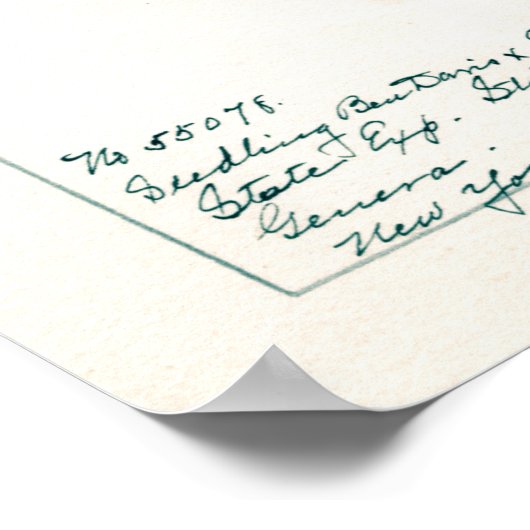 No 55078.
Seedling Ben Davis x
State Exp.
Geneva.
New Yo